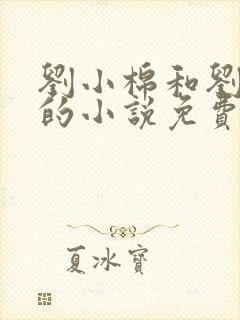 劉小棉和劉
的小說免費
夏冰寶